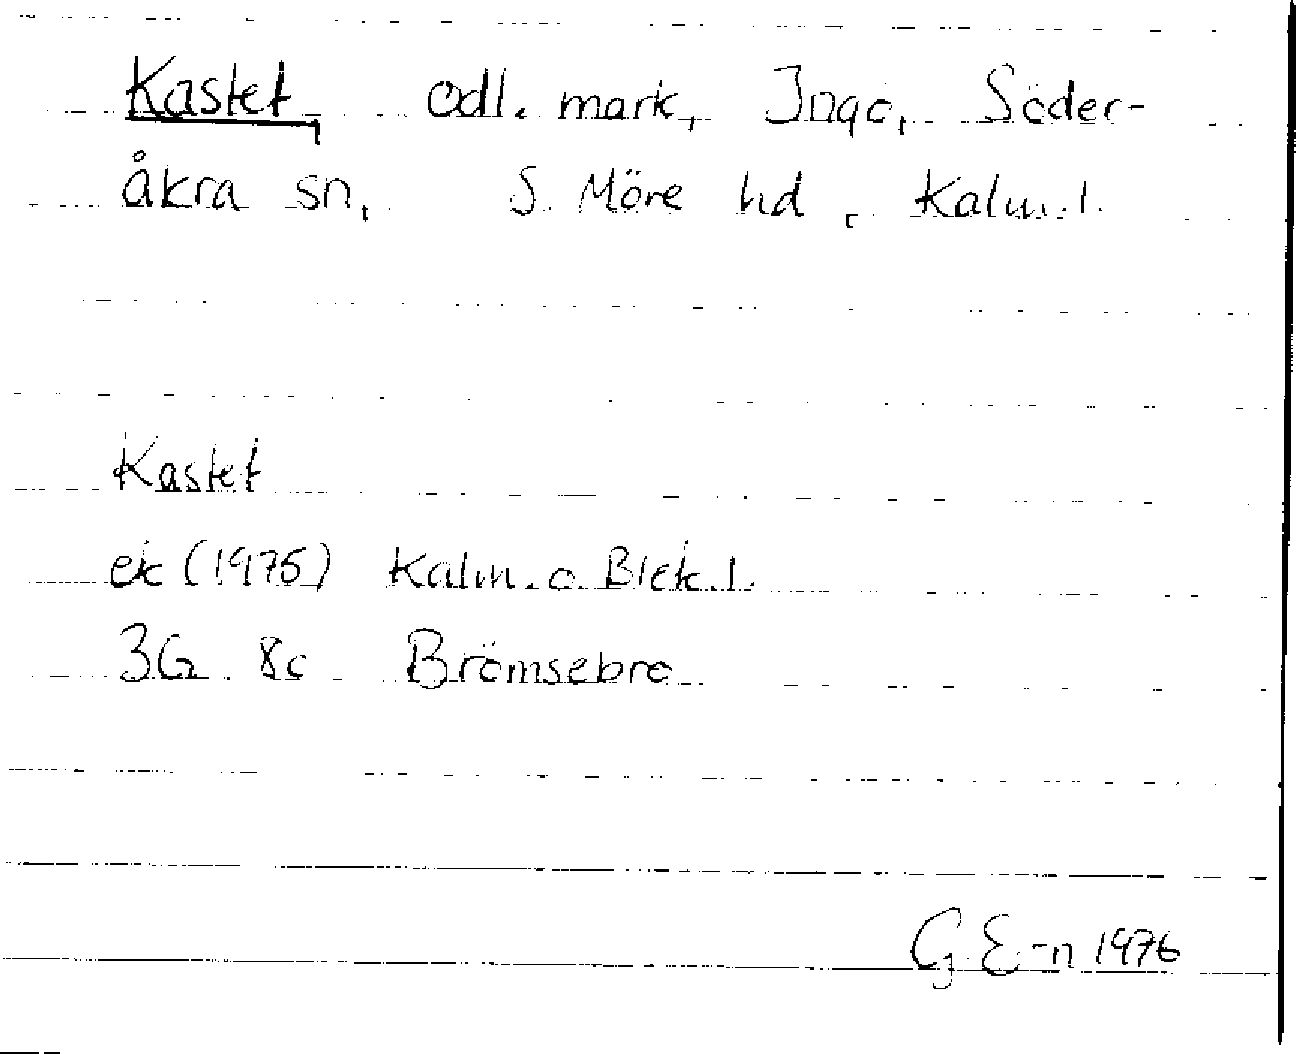 Kastet, odl. mark, Ingo, Söder-
åkra sn, S. Möre hd, Kalm. l.
Kastet
ek (1975) Kalm. o. Blek. l.
3G 8c Brömsebro
G E-n 1976